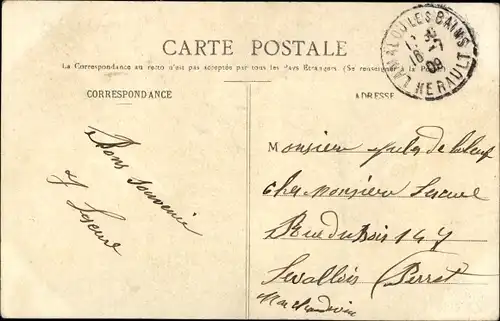 CARTE POSTALE
La Correspondance au recto n'est pas acceptée par tous les Pays Étrangers (Se renseigner à la Poste)
CORRESPONDANCE
ADRESSE
LAMALOU LES BAINS
16
09
HERAULT
Bons souvenir
J Leseure
Monsieur Jules
chez Monsieur Leseure
Rue du Bois 147
Levallois Perret